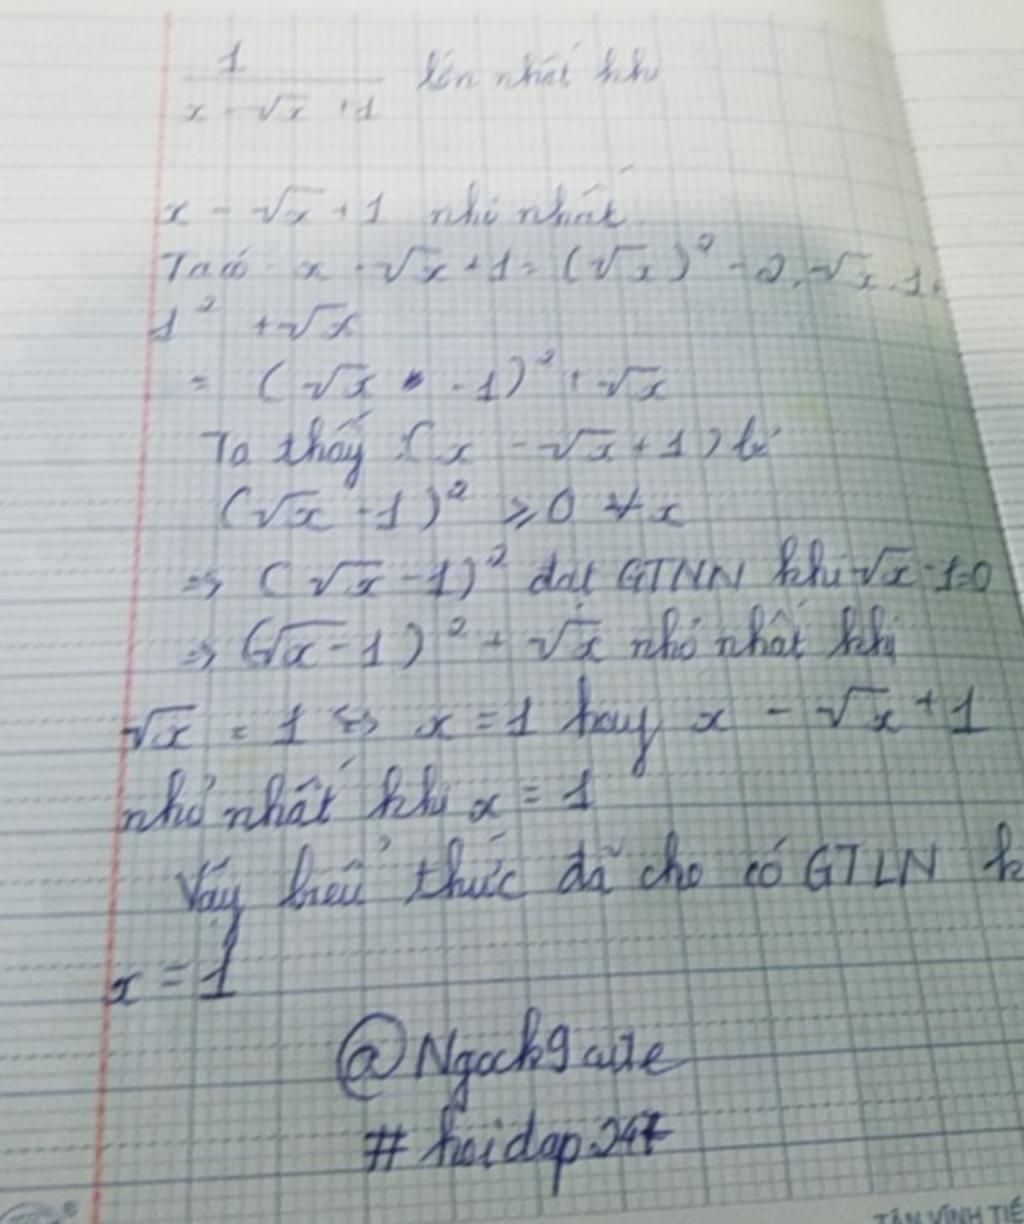 1
x - √x + 1 lớn nhất khi
x - √x + 1 nhỏ nhất.
Ta có x - √x + 1 = (√x)² - 2.√x.1+
1² + √x
= (√x - 1)² + √x
Ta thấy (x - √x + 1)
(√x - 1)² ≥ 0 ∀x
=> (√x - 1)² đạt GTNN khi √x - 1=0
=> (√x - 1)² + √x nhỏ nhất khi
√x = 1 <=> x = 1 hay x - √x + 1
nhỏ nhất khi x = 1
Vậy biểu thức đã cho có GTLN k
x = 1
@Ngock9aute
# hoidap247